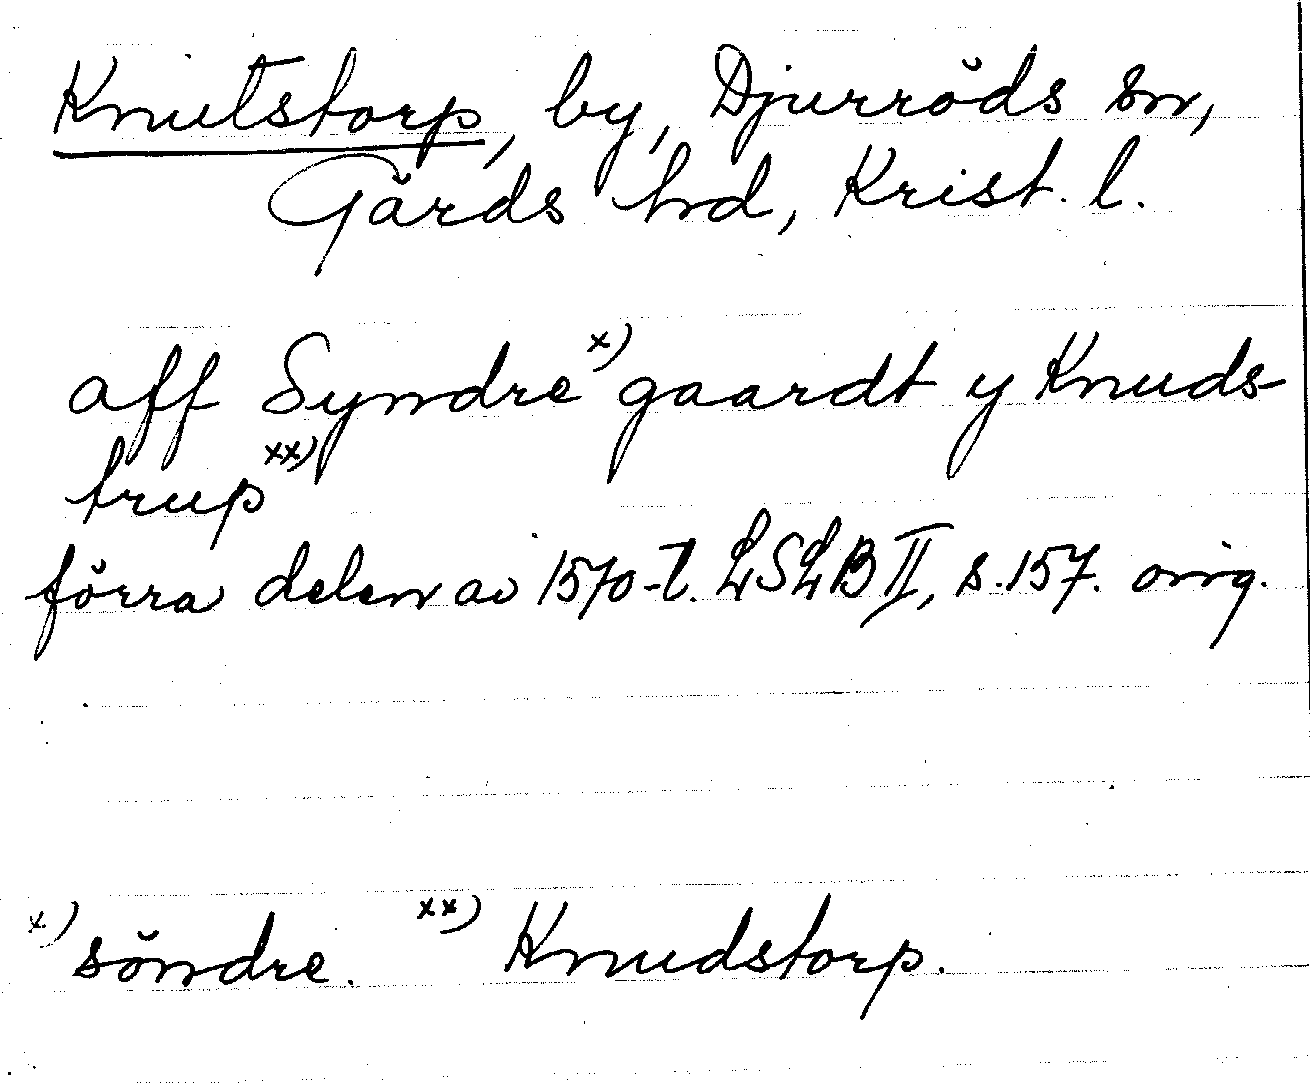 Knutstorp, by, Djurröds sn,
Gärds hrd, Krist. l.
aff Syndre x) gaardt y Knuds
trup xx)
förra delen av 1570-t. LSLB II, s. 157. orig.
x) söndre. xx) Knudstorp.